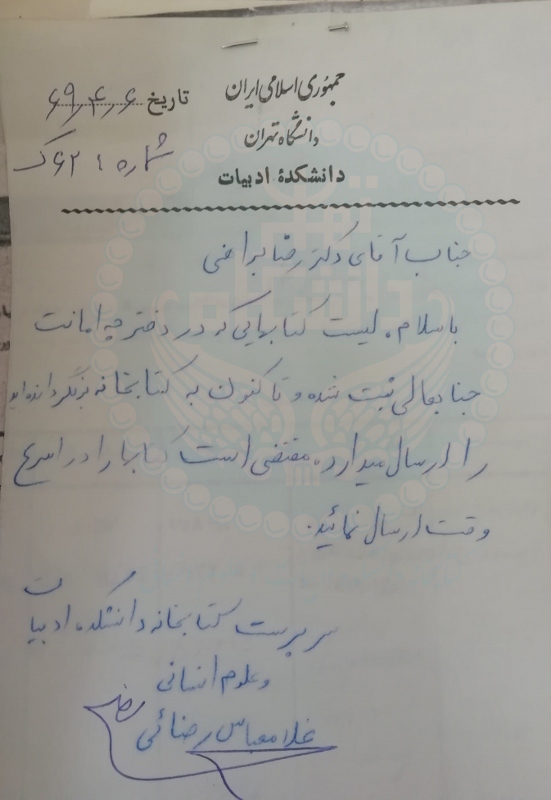 جمهوری اسلامی ایران
دانشگاه تهران
دانشکدهٔ ادبیات
تاریخ ۶۹/۴/۶
شماره ۶۲۱ ک
جناب آقای دکتر رضا براهنی
با سلام، لیست کتابهایی که در دفترچه امانت
جنابعالی ثبت شده و تا کنون به کتابخانه برنگردانده‌اید
را ارسال میدارد، مقتضی است کتابها را در اسرع
وقت ارسال نمائید.
سرپرست کتابخانه دانشکده ادبیات
و علوم انسانی
غلامعباس رضائی